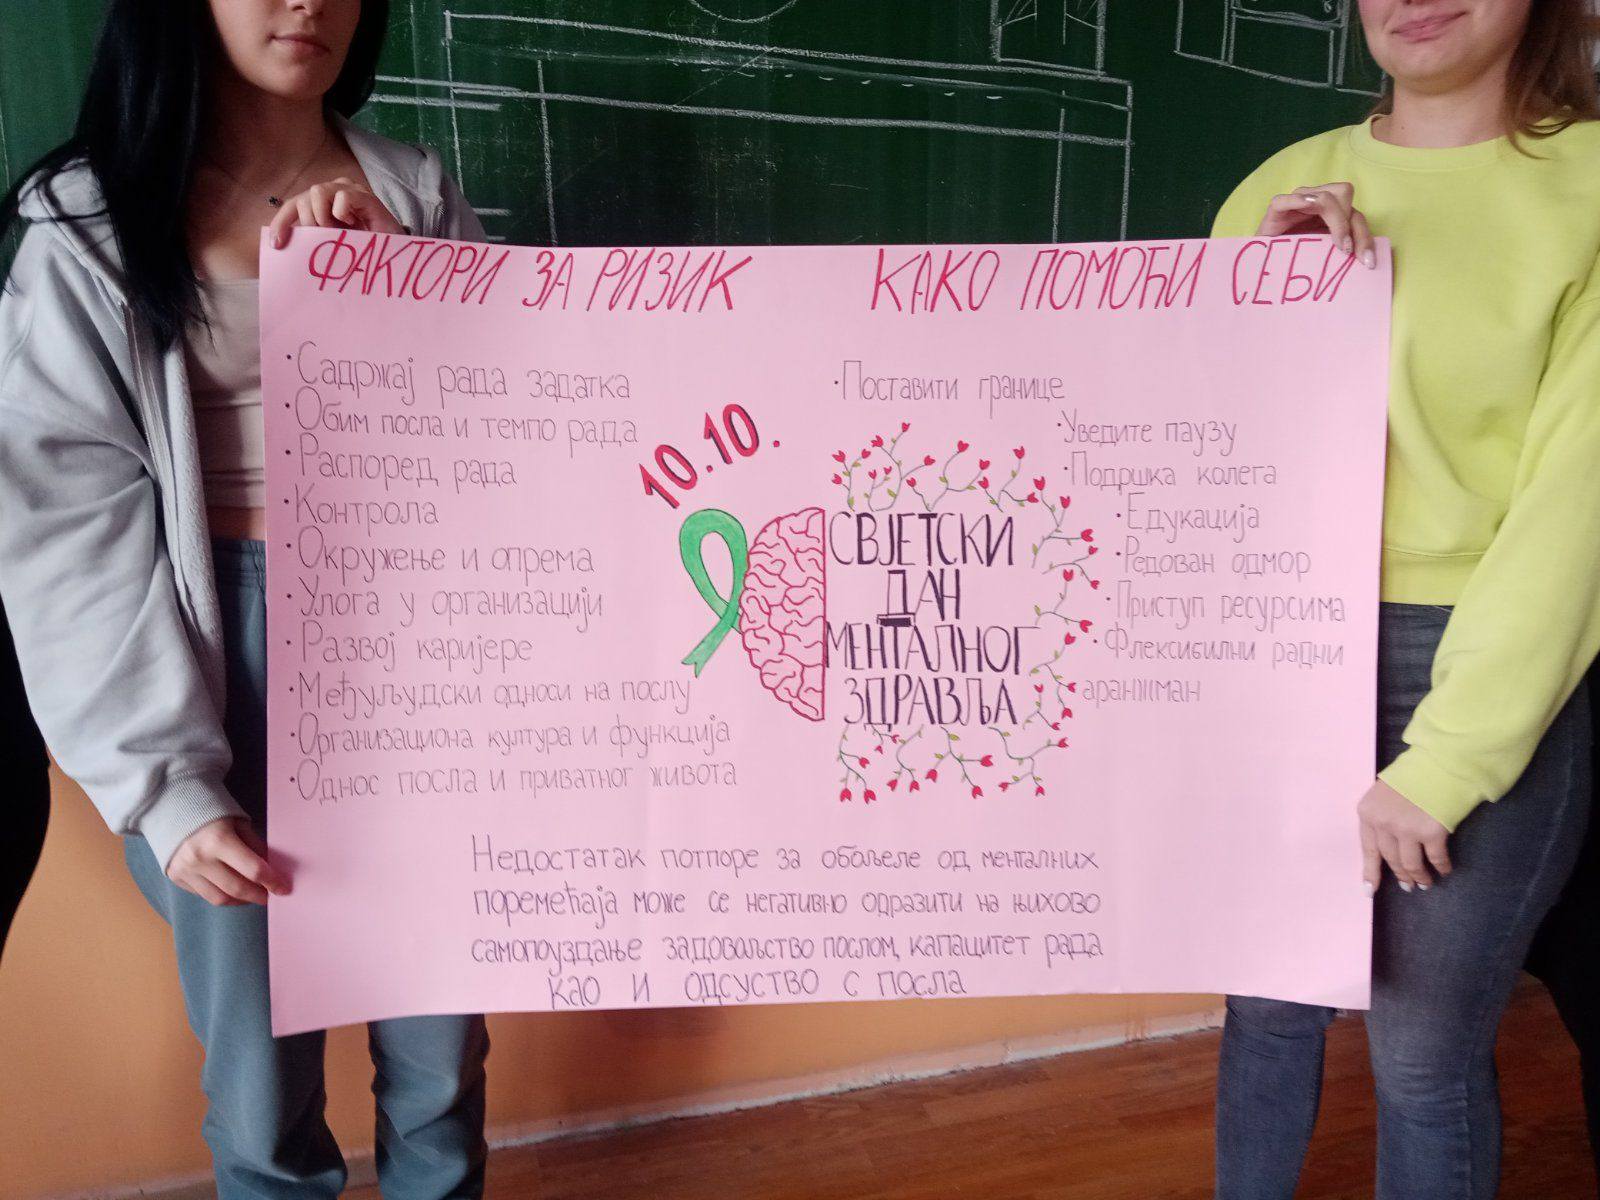 ФАКТОРИ ЗА РИЗИК
• Садржај рада задатка
• Обим посла и темпо рада
• Распоред рада
• Контрола
• Окружење и опрема
• Улога у организацији
• Развој каријере
• Међуљудски односи на послу
• Организациона култура и функција
• Однос посла и приватног живота
10.10.
СВЈЕТСКИ
ДАН
МЕНТАЛНОГ
ЗДРАВЉА
КАКО ПОМОЋИ СЕБИ
• Поставити границе
• Уведите паузу
• Подршка колега
• Едукација
• Редован одмор
• Приступ ресурсима
• Флексибилни радни
аранжман
Недостатак потпоре за обољеле од менталних
поремећаја може се негативно одразити на њихово
самопоуздање задовољство послом, капацитет рада
као и одсуство с посла